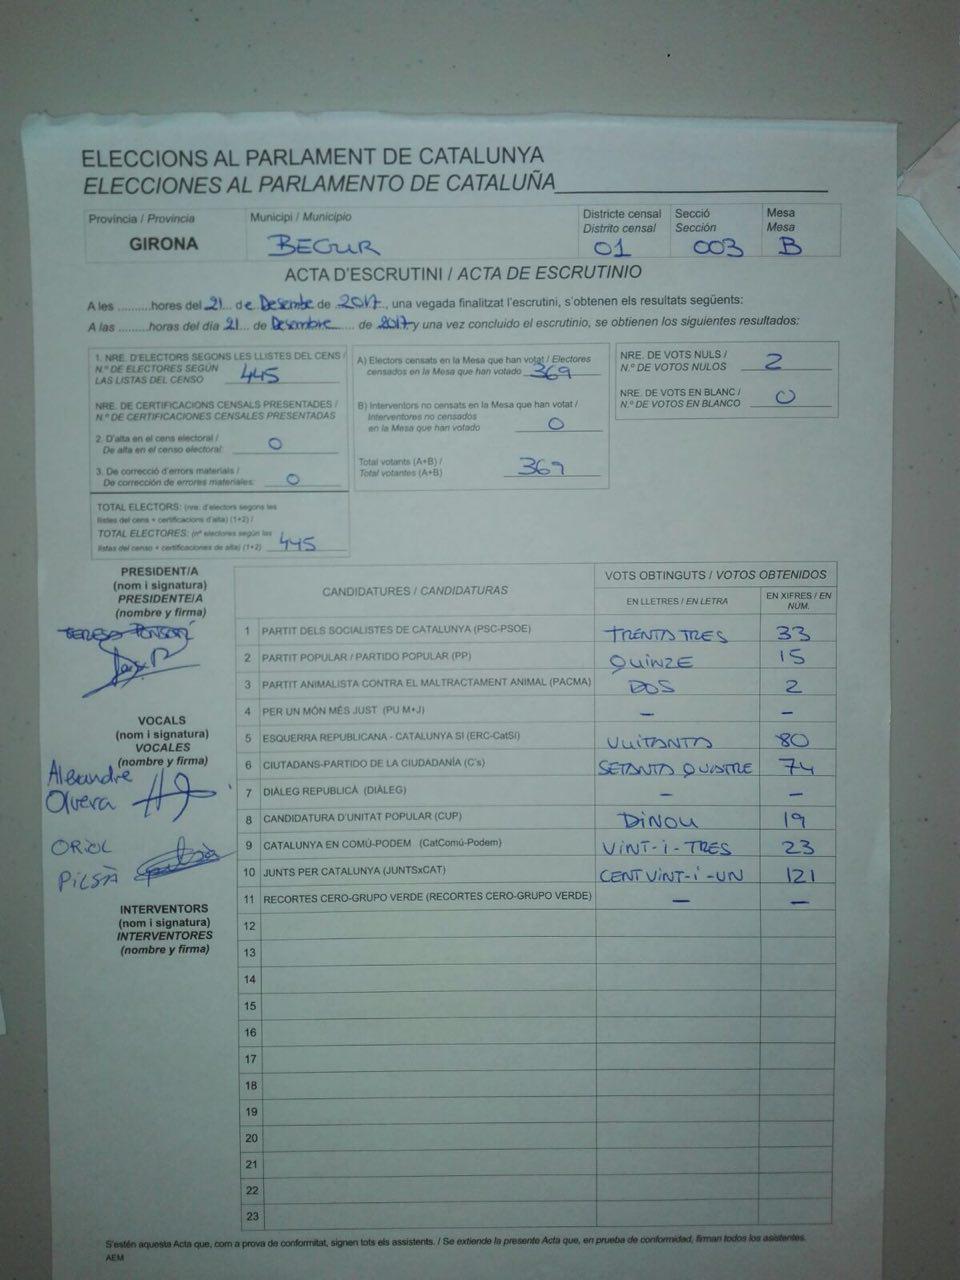 ELECCIONS AL PARLAMENT DE CATALUNYA
ELECCIONES AL PARLAMENTO DE CATALUÑA
Provincia / Provincia
GIRONA
Municipi / Municipio
BEGUR
Districte censal
Distrito censal
01
Secció
Sección
003
Mesa
Mesa
B
ACTA D'ESCRUTINI / ACTA DE ESCRUTINIO
A les ..........hores del 21 de Desembre de 2017, una vegada finalitzat l'escrutini, s'obtenen els resultats següents:
A las .........horas del día 21 de Desembre de 2017 y una vez concluido el escrutinio, se obtienen los siguientes resultados:
1. NRE. D'ELECTORS SEGONS LES LLISTES DEL CENS /
N.º DE ELECTORES SEGÚN
LAS LISTAS DEL CENSO 445
NRE. DE CERTIFICACIONS CENSALS PRESENTADES /
N.º DE CERTIFICACIONES CENSALES PRESENTADAS
2. D'alta en el cens electoral /
De alta en el censo electoral: 0
3. De correcció d'errors materials /
De corrección de errores materiales: 0
TOTAL ELECTORS: (nre. d'electors segons les
llistes del cens + certificacions d'alta) (1+2) /
TOTAL ELECTORES: (nº electores según las
listas del censo + certificaciones de alta) (1+2) 445
A) Electors censats en la Mesa que han votat / Electores
censados en la Mesa que han votado 369
B) Interventors no censats en la Mesa que han votat /
Interventores no censados
en la Mesa que han votado 0
Total votants (A+B) /
Total votantes (A+B) 369
NRE. DE VOTS NULS /
N.º DE VOTOS NULOS 2
NRE. DE VOTS EN BLANC /
N.º DE VOTOS EN BLANCO 0
PRESIDENT/A
(nom i signatura)
PRESIDENTE/A
(nombre y firma)
VOCALS
(nom i signatura)
VOCALES
(nombre y firma)
Olvera
ORIOL
INTERVENTORS
(nom i signatura)
INTERVENTORES
(nombre y firma)
CANDIDATURES / CANDIDATURAS
VOTS OBTINGUTS / VOTOS OBTENIDOS
EN LLETRES / EN LETRA
EN XIFRES / EN NÚM.
1 PARTIT DELS SOCIALISTES DE CATALUNYA (PSC-PSOE) TRENTA TRES 33
2 PARTIT POPULAR / PARTIDO POPULAR (PP) QUINZE 15
3 PARTIT ANIMALISTA CONTRA EL MALTRACTAMENT ANIMAL (PACMA) DOS 2
4 PER UN MÓN MÉS JUST (PU M+J) – –
5 ESQUERRA REPUBLICANA - CATALUNYA SI (ERC-CatSI) VUITANTA 80
6 CIUTADANS-PARTIDO DE LA CIUDADANÍA (C's) SETANTA QUATRE 74
7 DIÀLEG REPUBLICÀ (DIÀLEG) – –
8 CANDIDATURA D'UNITAT POPULAR (CUP) DINOU 19
9 CATALUNYA EN COMÚ-PODEM (CatComú-Podem) VINT-I-TRES 23
10 JUNTS PER CATALUNYA (JUNTSxCAT) CENT VINT-I-UN 121
11 RECORTES CERO-GRUPO VERDE (RECORTES CERO-GRUPO VERDE) – –
12
13
14
15
16
17
18
19
20
21
22
23
S'estén aquesta Acta que, com a prova de conformitat, signen tots els assistents. / Se extiende la presente Acta que, en prueba de conformidad, firman todos los asistentes.
AEM